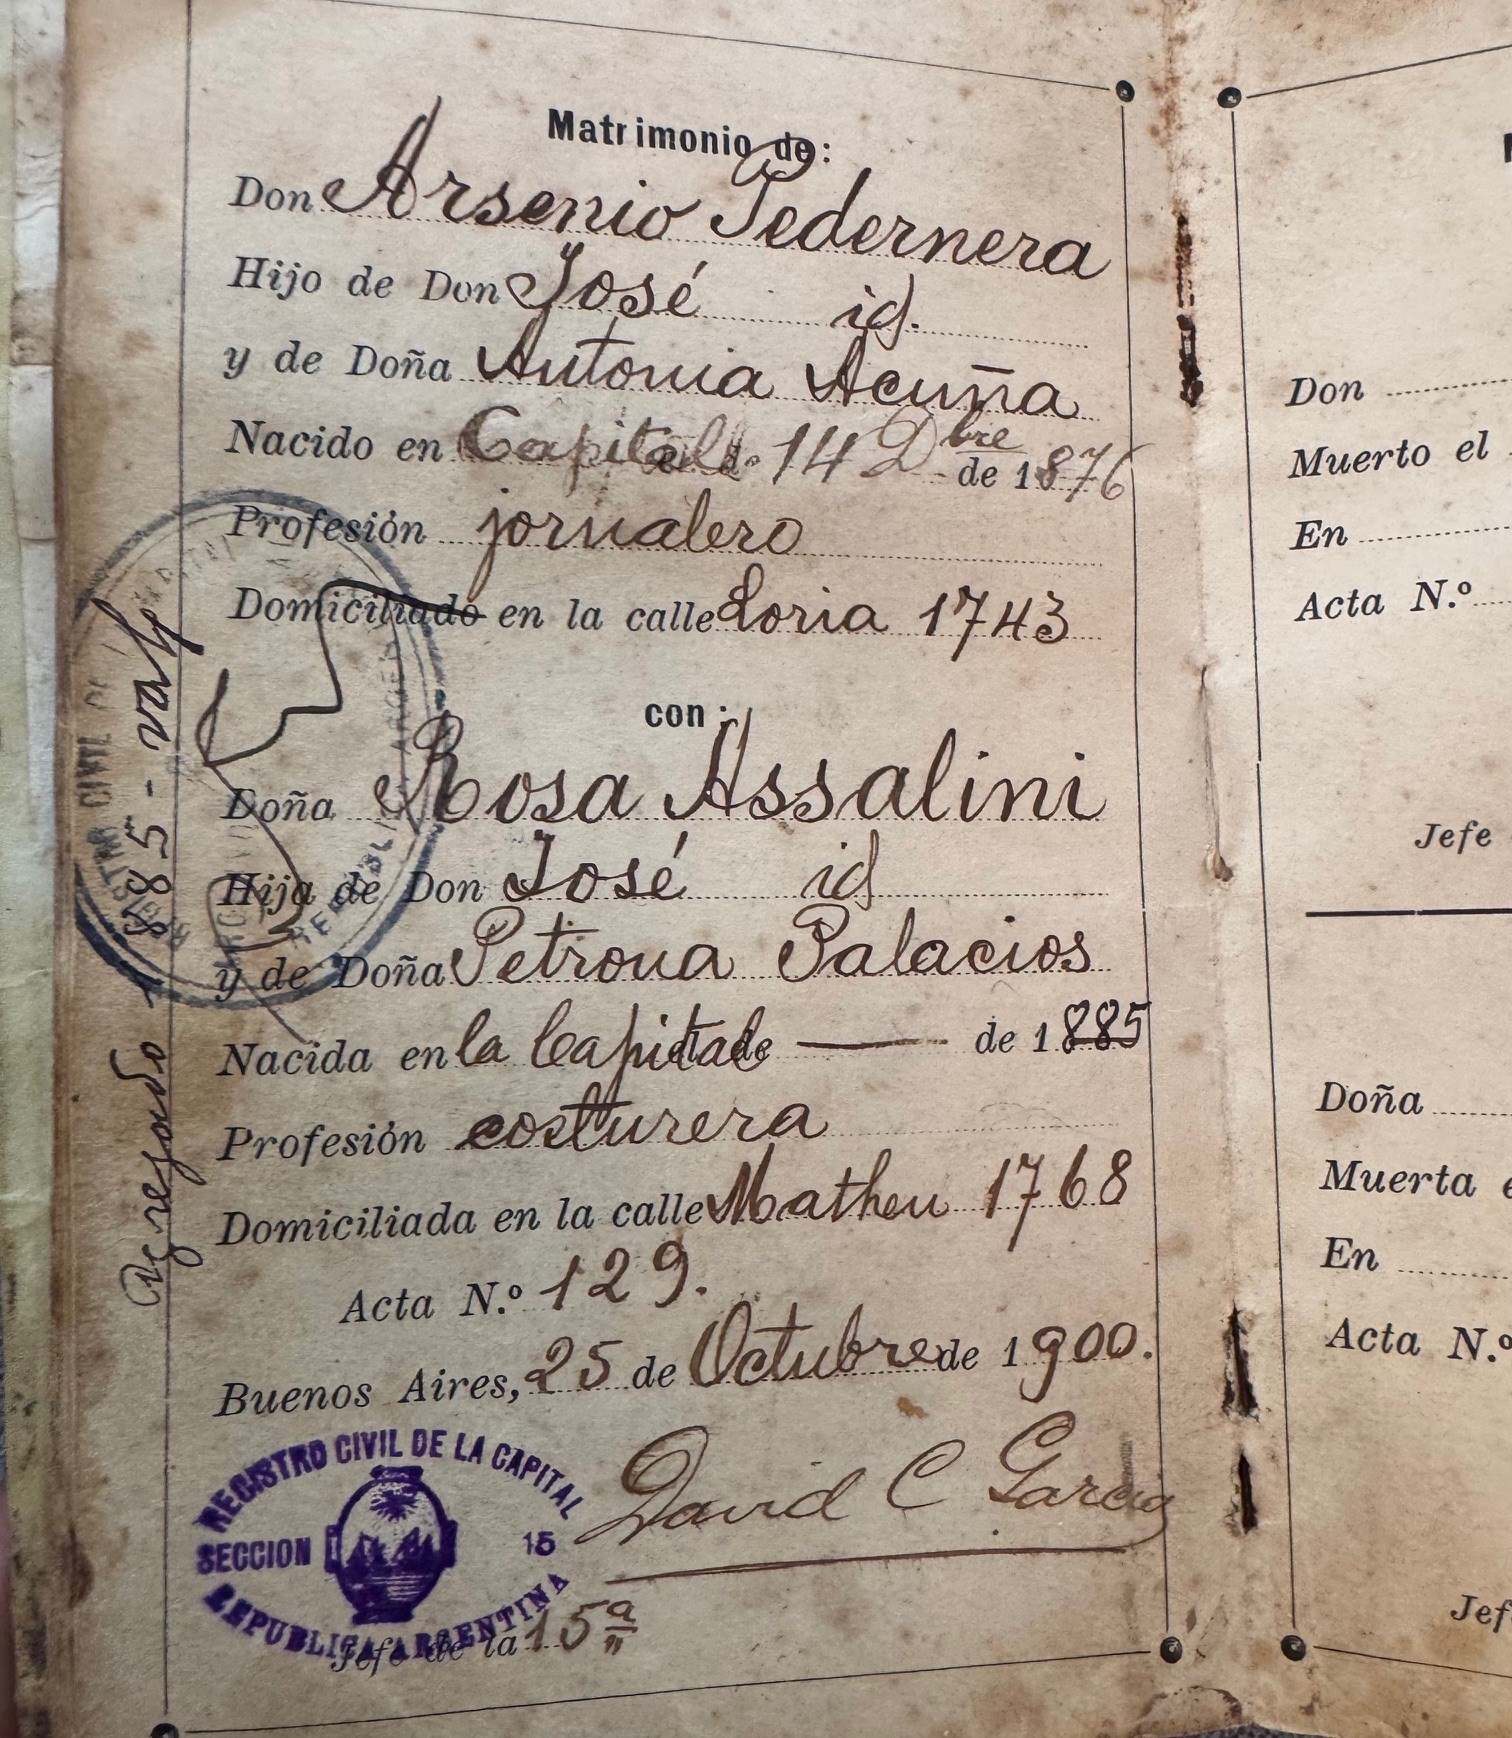 Matrimonio de:
Don Arsenio Pedernera
Hijo de Don José id.
y de Doña Antonia Acuña
Nacido en Capital el 14 Dbre de 1876
Profesión jornalero
Domiciliado en la calle Loria 1743
con:
Doña Rosa Assalini
Hija de Don José id
y de Doña Petrona Palacios
Nacida en la Capital el de — de 1885
Profesión costurera
Domiciliada en la calle Matheu 1768
Acta N.º 129.
Buenos Aires, 25 de Octubre de 1900.
David C Garcia
Jefe de la 15ª
REGISTRO CIVIL DE LA CAPITAL
SECCION 15
REPUBLICA ARGENTINA
Agregado - 885 - vale
CIVIL DE
Don
Muerto el
En
Acta N.º
Jefe
Doña
Muerta
En
Acta N.º